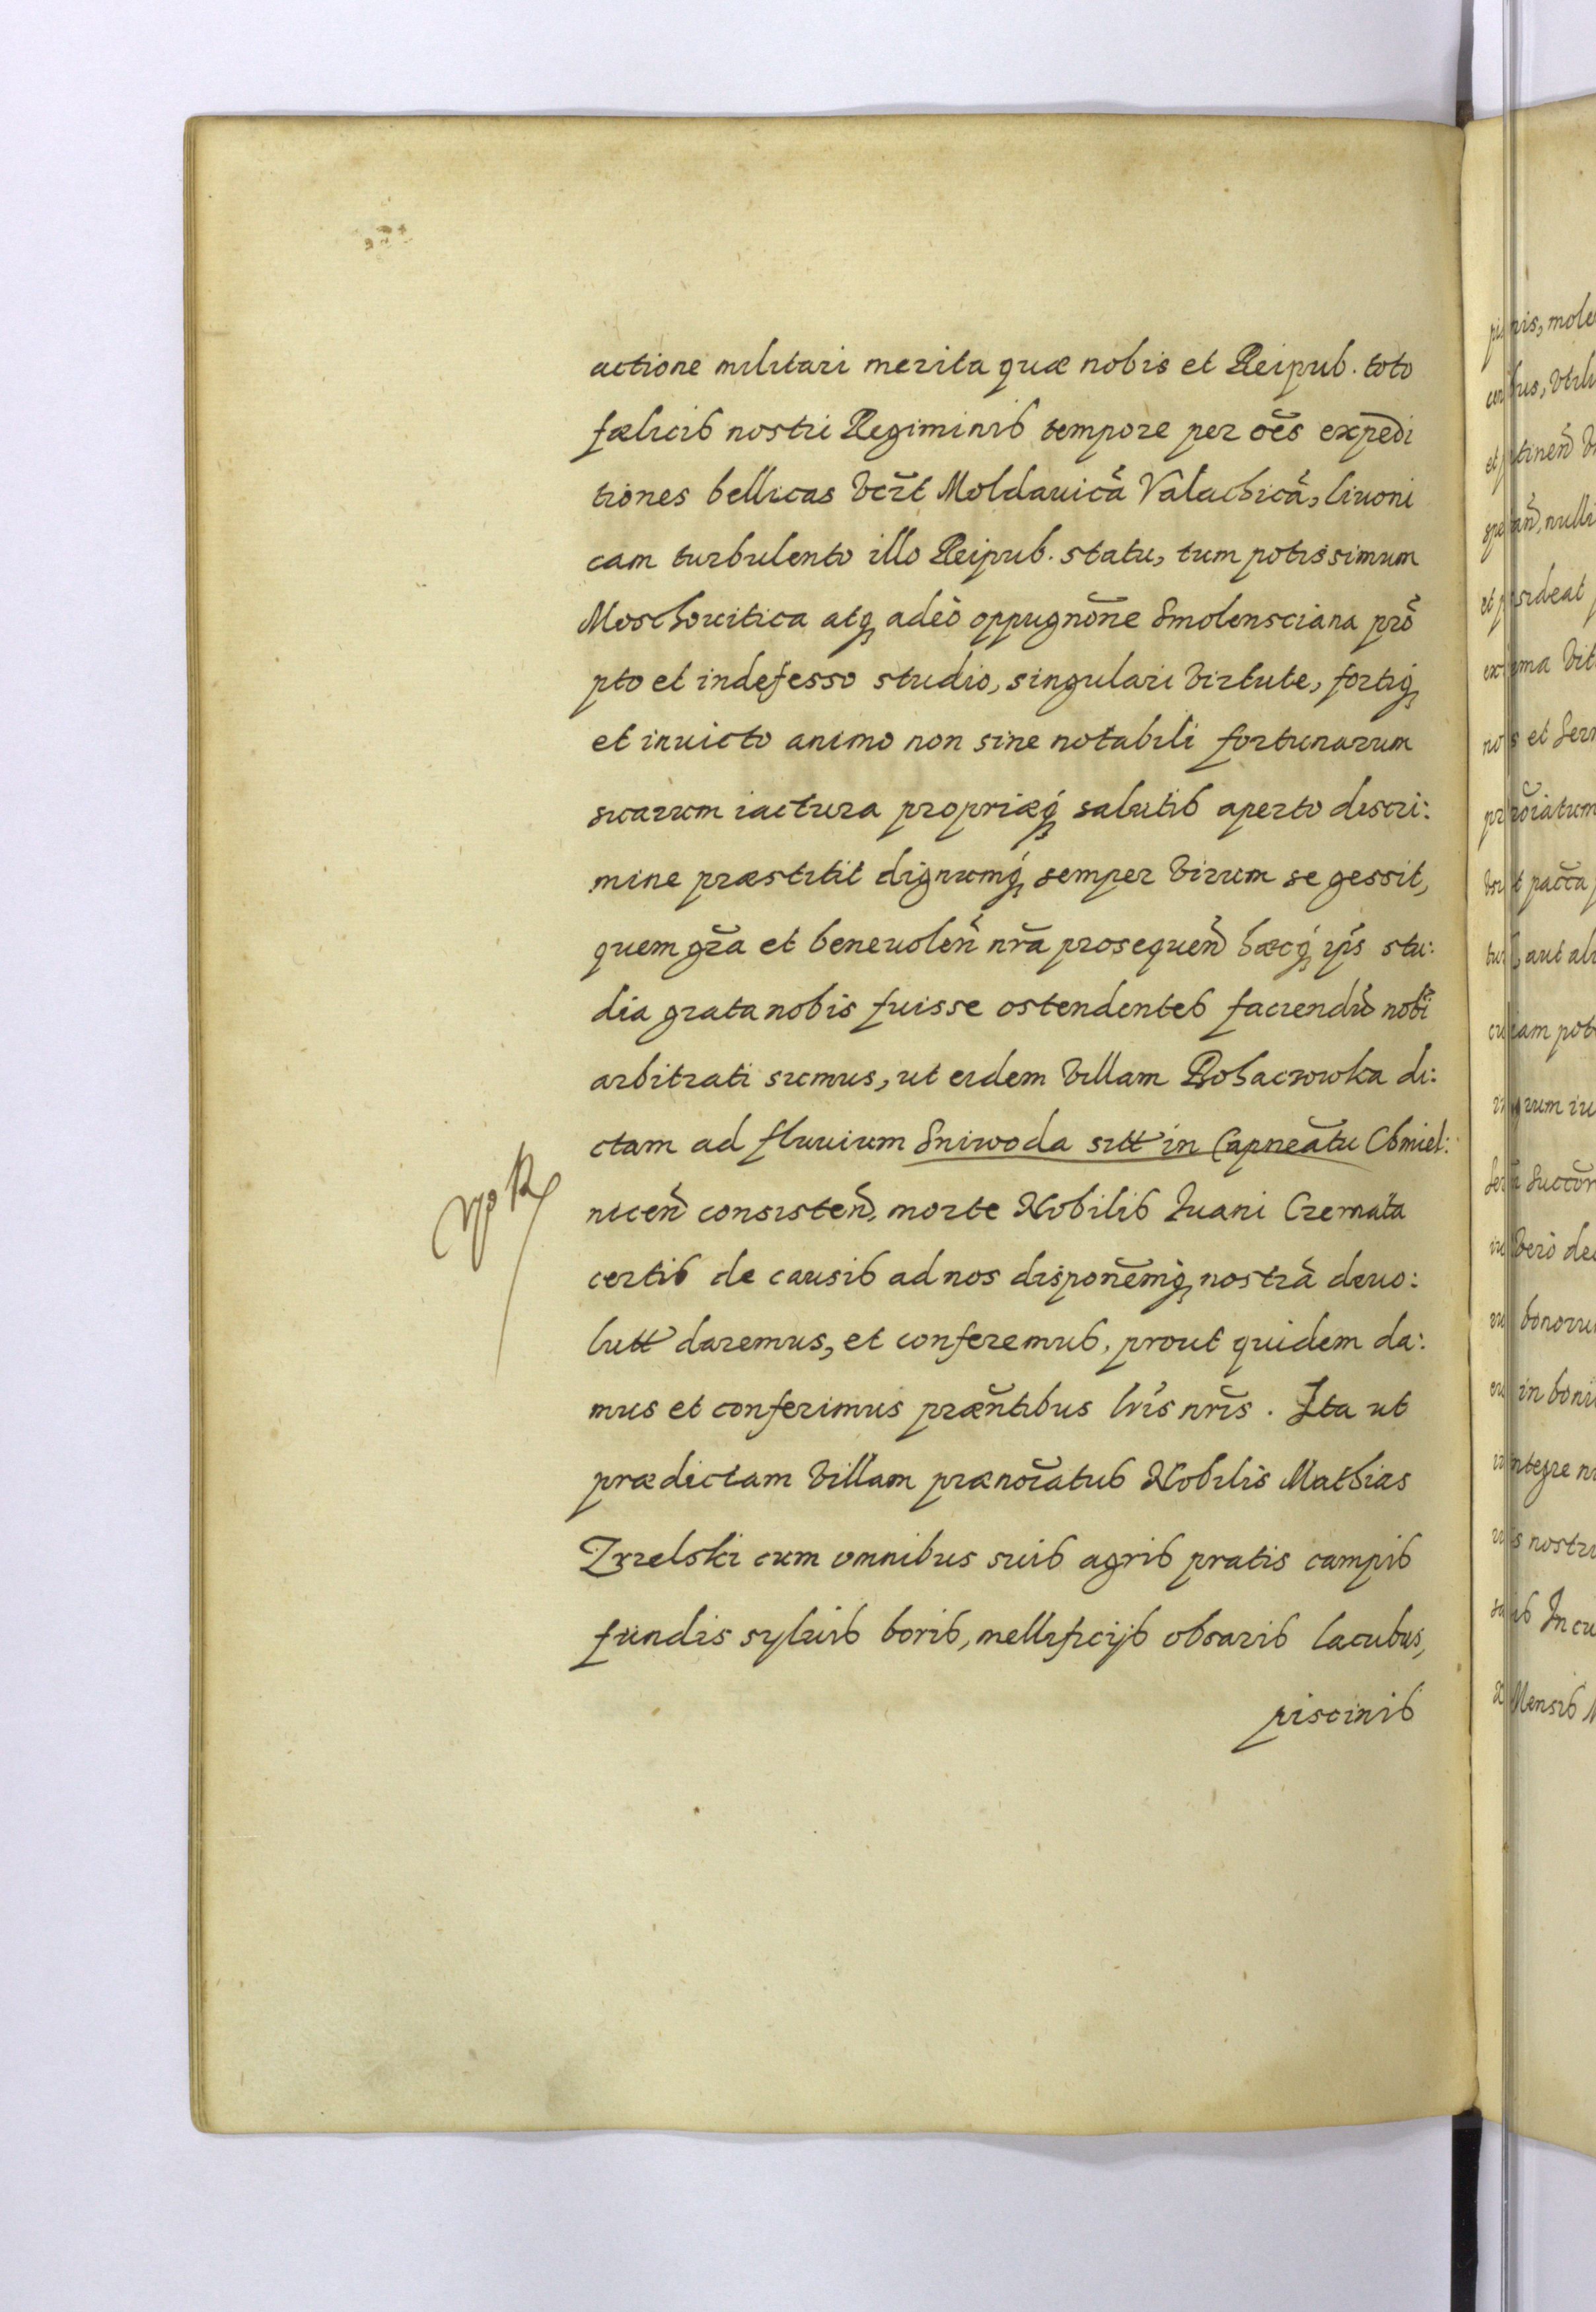 actione militari merita quæ nobis et Reipub. toto
fœlicis nostri Regiminis tempore per oẽs expedi
tiones bellicas vcz̃t Moldauicã Valachicã, livoni
cam turbulento illo Reipub. statu, tum potissimum
Moschouitica atq adeò oppugnõne Smolensciana prõ
pto et indefesso studio, singulari virtute, fortiq
et inuicto animo non sine notabili fortunarum
suarum iactura propriæq salutis aperto discri:
mine præstitit dignumq semper virum se gessit,
quem grã et beneuolen̄ nrã prosequen̄ hæcq ips̃ stu:
dia grata nobis fuisse ostendentes faciendũ nobĩ
arbitrati sumus, ut eidem villam Rohaczowka di:
ctam ad fluuium Sniwoda sitt in Capneãtu Chmiel:
nicen̄ consisten̄, morte Nobilis Iuani Czemata
certis de causis ad nos disponẽmq nostrã deuo:
lutt daremus, et conferemus, prout quidem da:
mus et conferimus præñtibus lrĩs nrĩs. Ita ut
prædictam villam prænoĩatus Nobilis Mathias
Zrzelski cum omnibus suis agris pratis campis
fundis syluis boris, mellificijs obraris lacubus,
piscinis